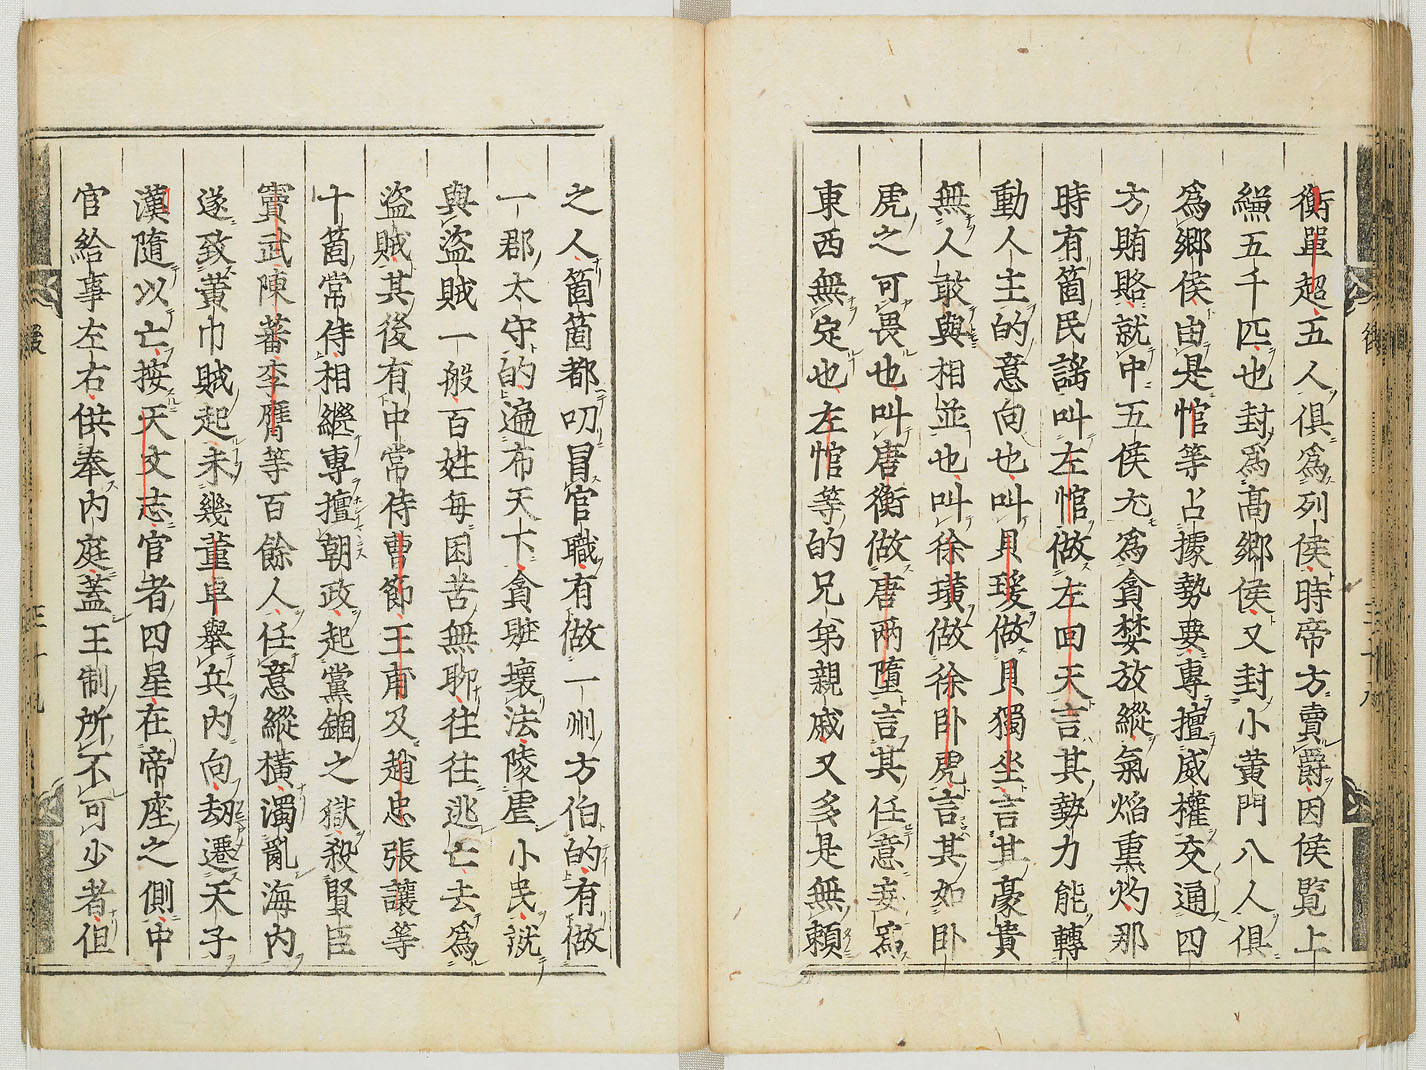 衡單超五人俱爲列侯時帝方賣爵因侯覧上
縑五千匹也封爲髙鄉侯又封小黄門八人俱
爲鄉侯由是悺等占據勢要專擅威權交通四
方賄賂就中五侯尤爲貪婪放縱氣焰熏灼那
時有箇民謡叫左悺做左回天言其勢力能轉
動人主的意向也叫貝瑗做貝獨坐言其豪貴
無人敢與相並也叫徐璜做徐卧虎言其如卧
虎之可畏也叫唐衡做唐兩墮言其任意妄爲
東西無定也左悺等的兄弟親戚又多是無頼
之人箇箇都叨冒官職有做一州方伯的有做
一郡太守的遍布天下貪賍壞法陵虐小民就
與盗賊一般百姓每困苦無聊往往逃亡去爲
盗賊其後有中常侍曹節王甫及趙忠張讓等
十箇常侍相繼專擅朝政起黨錮之獄殺賢臣
竇武陳蕃李膺等百餘人任意縱横濁亂海内
遂致黄巾賊起未幾董卓舉兵内向劫遷天子
漢隨以亡按天文志宦者四星在帝座之側中
官給事左右供奉内庭蓋王制所不可少者但